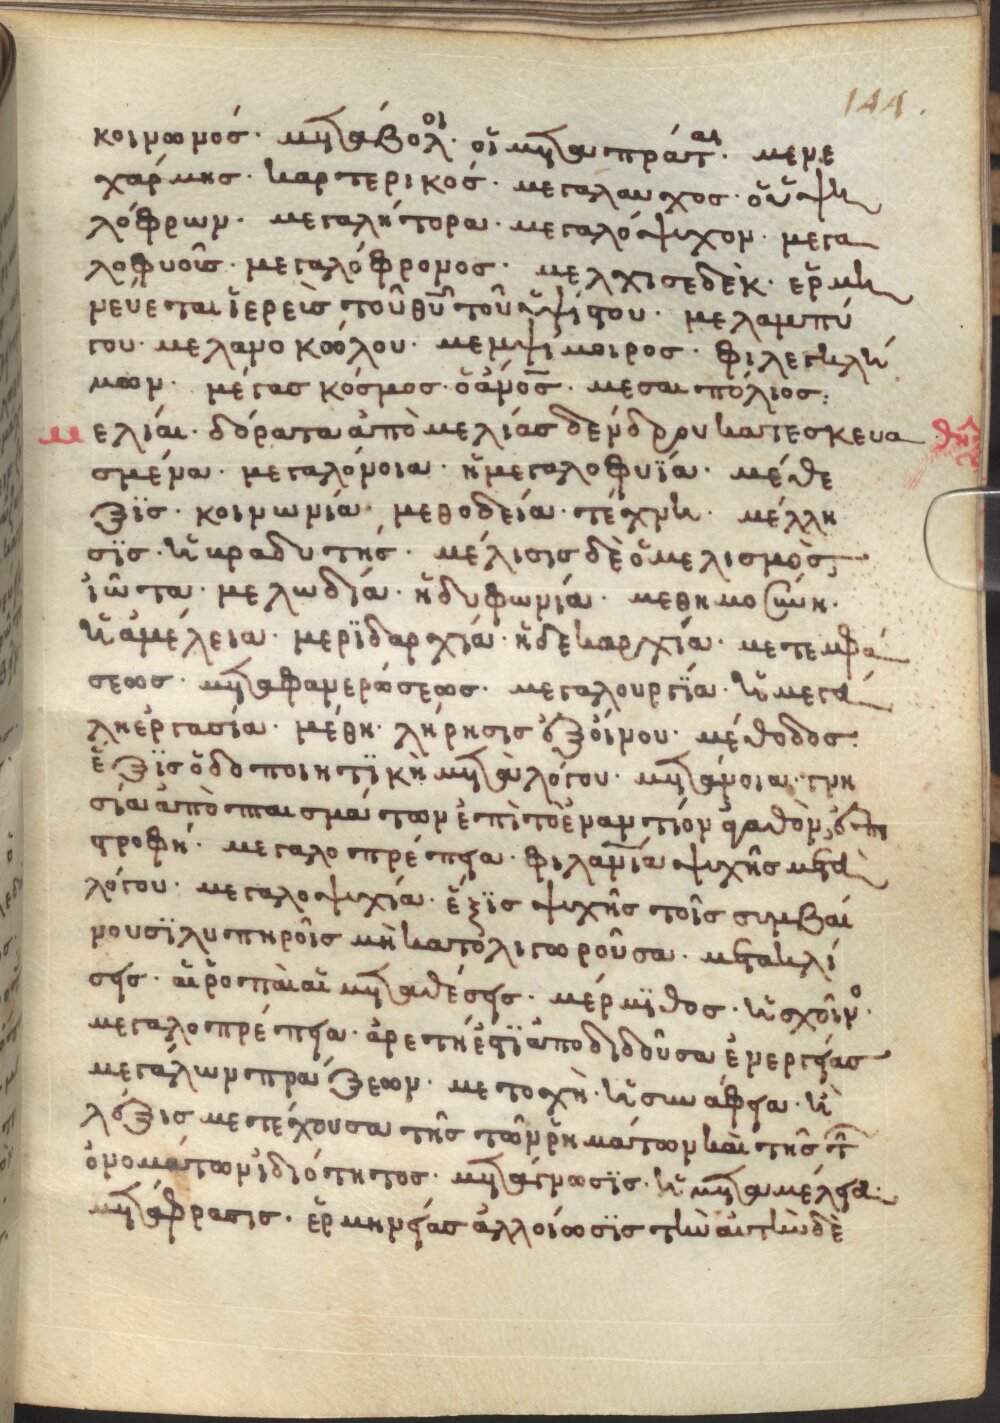 144.
κοινωνός. μεταβολ οι. οἱ μεταπράτ αι. μενε
χάρμης. καρτερικός. μεγαλαυχος. ὁ ὑψη
λόφρων. μεγαλήτορα. μεγαλόψυχον. μεγα
λοφυοῦς. μεγαλόφρονος. μελχισεδὲκ. ἑρμη
νεύεται ἱερεὺς τοῦ θυ τοῦ ὑψίστου. μελαμπύ
γου. μελανοκώλου. μεμψίμοιρος. φιλεγκλή
μων. μέγας κόσμος. ὁ ανος. μεσαιπόλιος:
μελίαι. δόρατα ἀπὸ μελίας δένδρου κατεσκευα
σμένα. μεγαλόνοια. ἡ μεγαλοφυΐα. μέθε
ξις. κοινωνία. μεθοδεία. τέχνη. μέλλη
σις. ἡ βραδυτής. μέλισις δὲ ὁ μελισμὸς
ἰῶτα. μελωδία. ἡδυφωνία. μεθημοσύνη.
ἡ ἀμέλεια. μεριδαρχία. ἡ δεκαρχία. μετεμφά
σεως. μεταφανερώσεως. μεγαλουργία. ἡ μεγά
λη ἐργασία. μέθη. λήρησις ἐξ οἴνου. μέθοδος.
ἕξις ὁδοποιητικὴ μετὰ λόγου. μετάνοια. γνη
σία ἀπὸ πταισμάτων ἐπὶ τὸ ἐναντίον ἀγαθὸν ἐπι
στροφή. μεγαλοπρέπεια. φιλανία ψυχῆς μετὰ
λόγου. μεγαλοψυχία. ἕξις ψυχῆς τοῖς συμβαί
νουσι λυπηροῖς μὴ κατολιγωροῦσα. μετακλί
σεις. αἱ ῥοπαὶ αἱ μεταθέσεις. μέρμιθος. ἡ σχοῖν ο.
μεγαλοπρέπεια. ἀρετή ἐστι ἀποδιδοῦσα ἐνεργείας
μεγάλων πράξεων. μετοχὴ. ἡ συνάφεια. ἢ
λέξις μετέχουσα τῆς τῶν ῥημάτων καὶ τῆς τ
ὀνομάτων ἰδιότητος. μετάγνωσις. ἡ μεταμέλεια.
μετάφρασις. ἑρμηνείας ἀλλοίωσις τὴν αὐτὴν δὲ